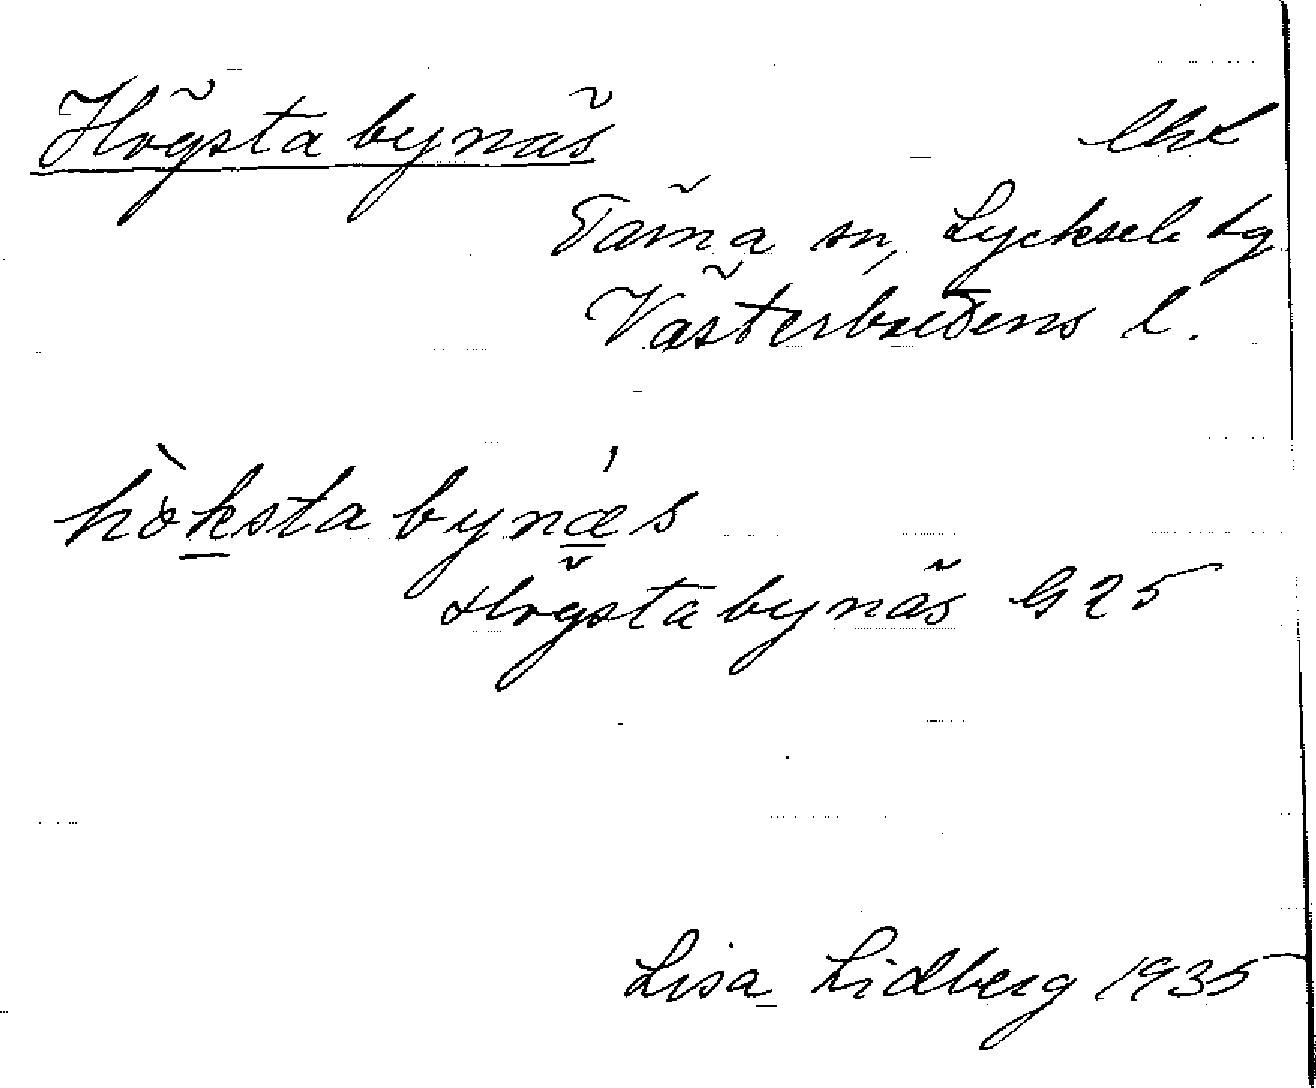 Högstabynäs lht
Tärna sn, Lycksele lg
Västerbottens l.
hökstabynæs
Högstabynäs G25
Lisa Lidberg 1935